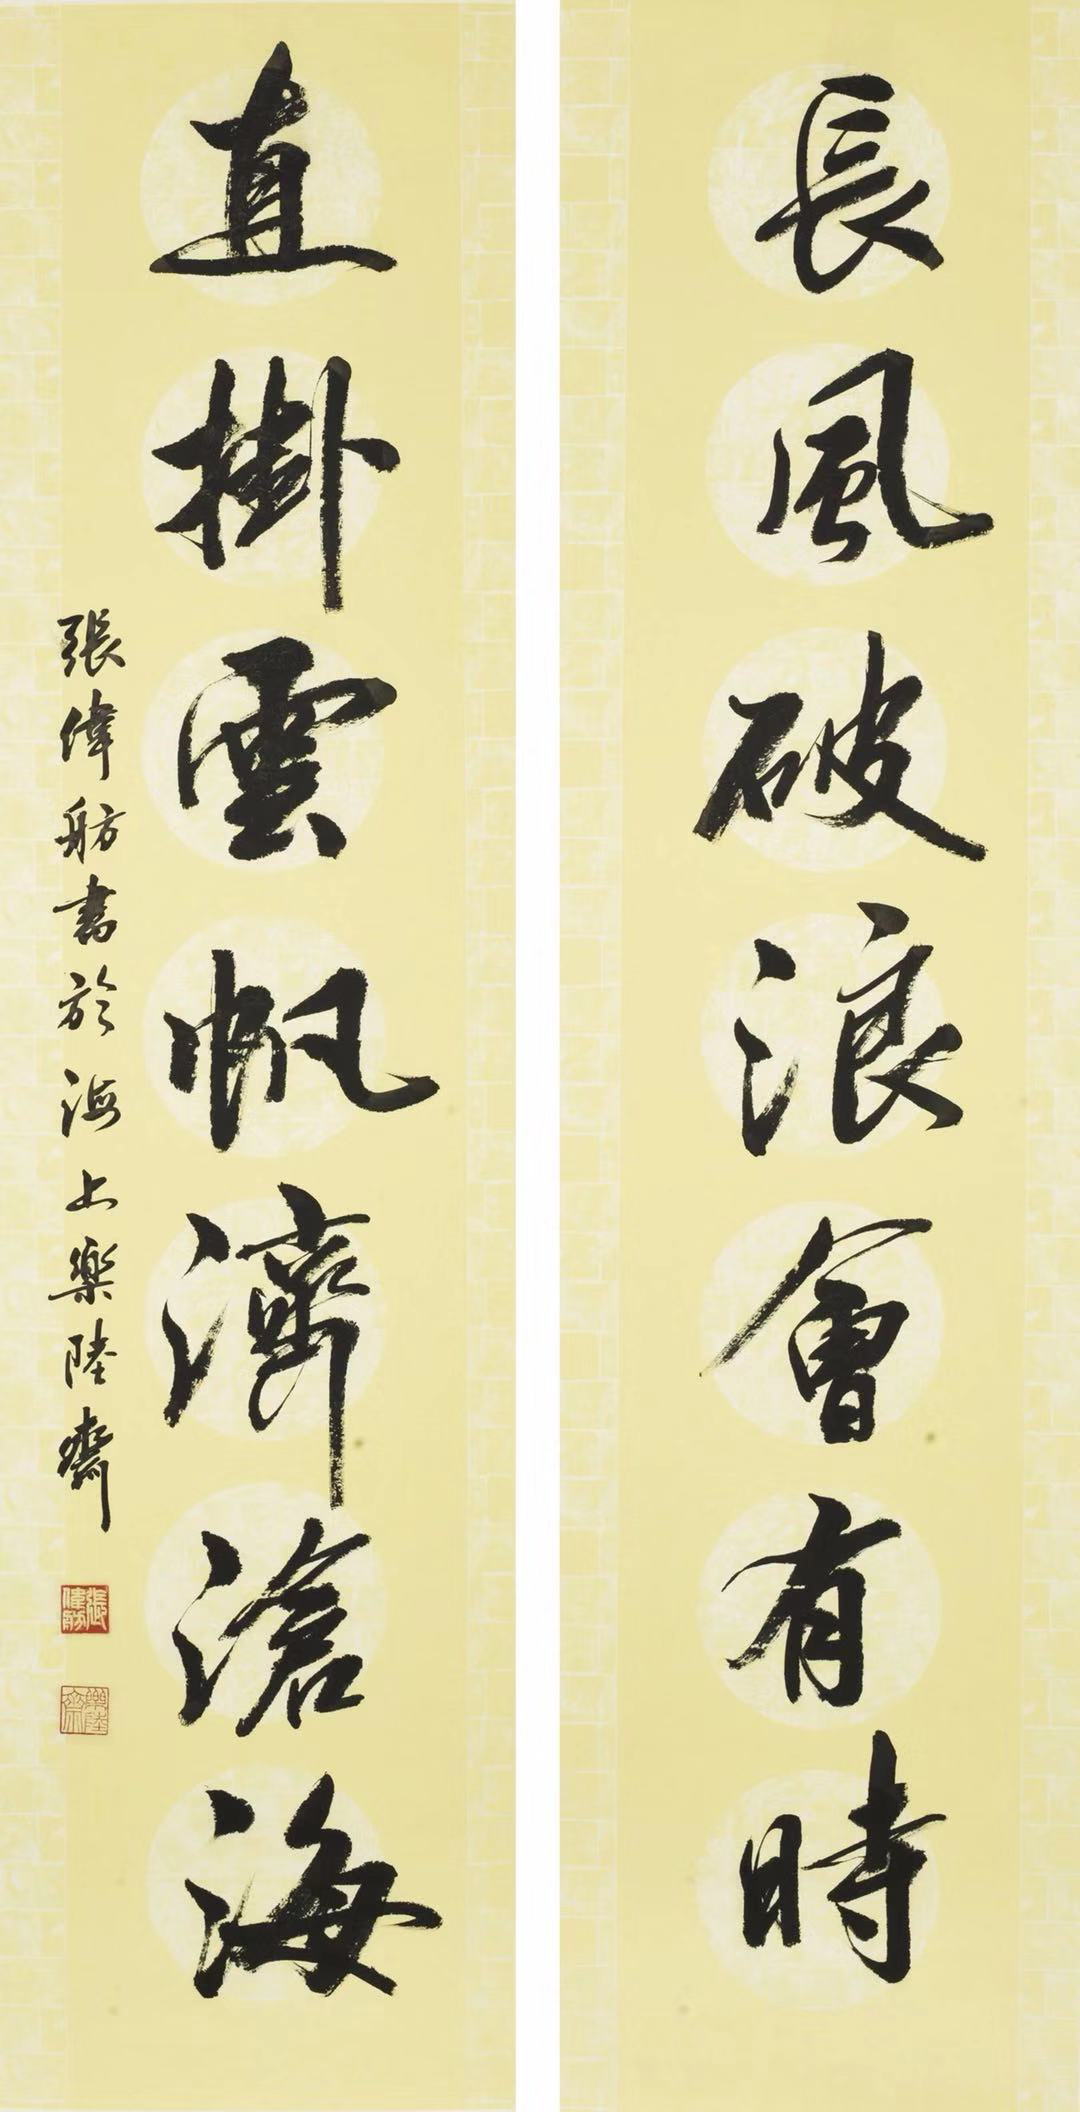 長風破浪會有時
直掛雲帆濟滄海
張偉舫書於海上樂陸齋
張偉舫
樂陸齋